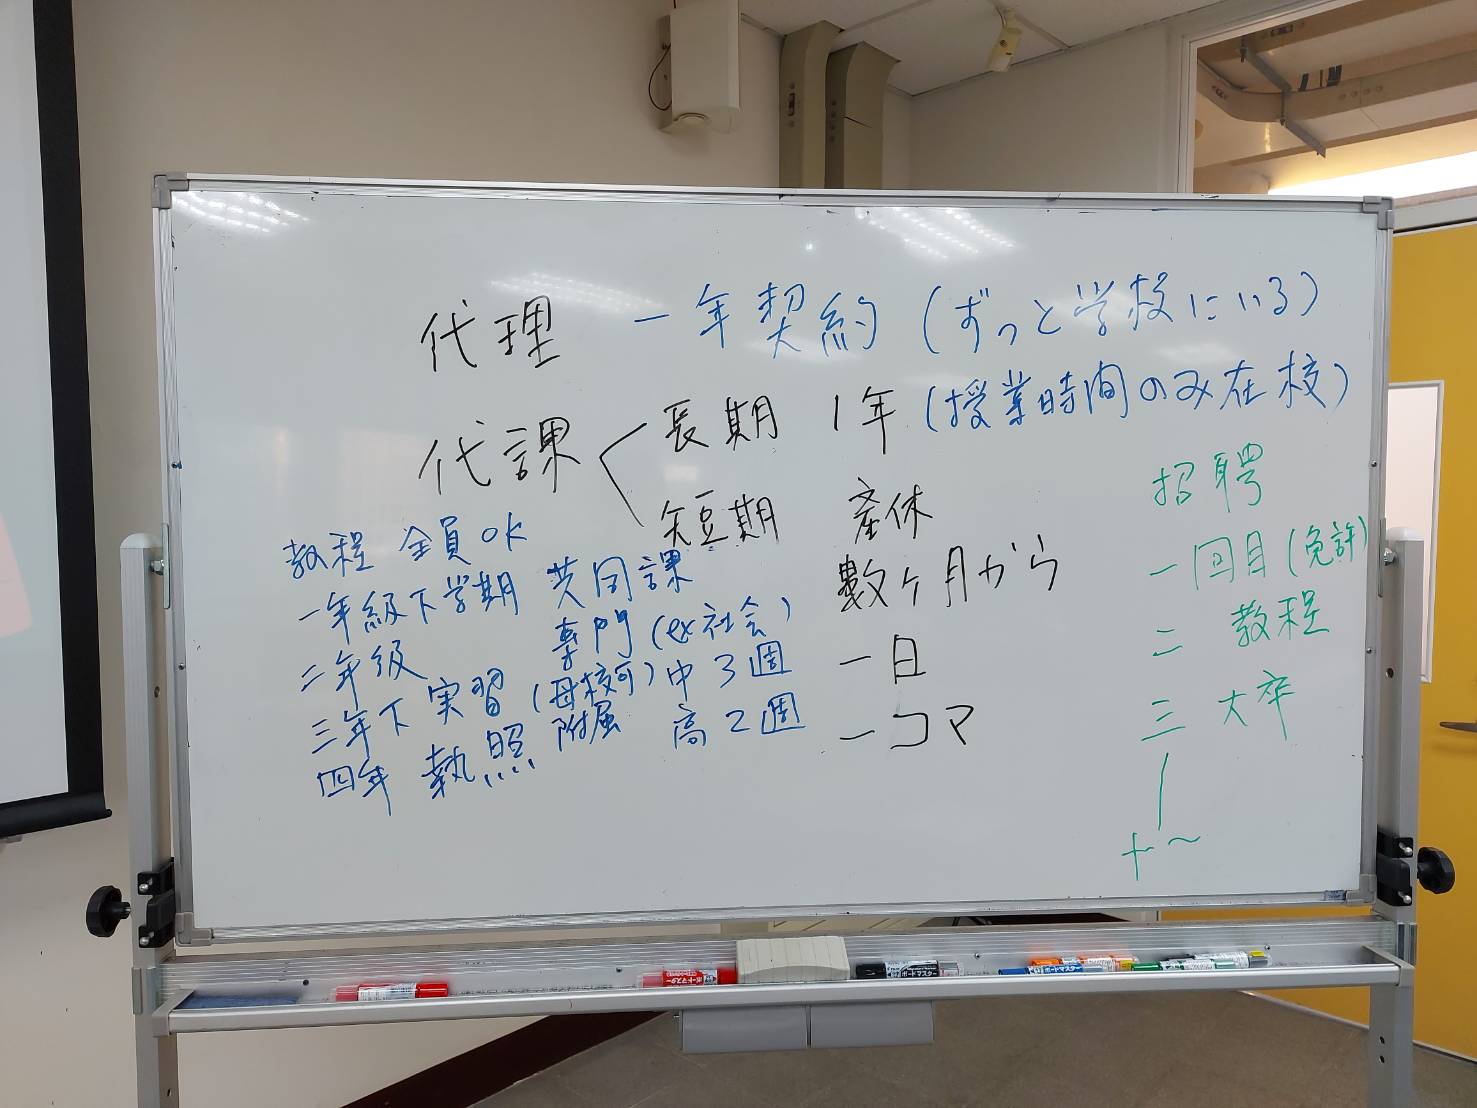 代理 一年契約(ずっと学校にいる)
代課 長期 1年(授業時間のみ在校)
短期 産休
數ヶ月から
一日
一コマ
教程 全員OK
一年級下学期 共同課
二年級 專門(ex社会)
三年下 実習(母校可)中3週
附属 高2週
四年 執照
招聘
一回目(免許)
二 教程
三 大卒
十~
ボードマスター